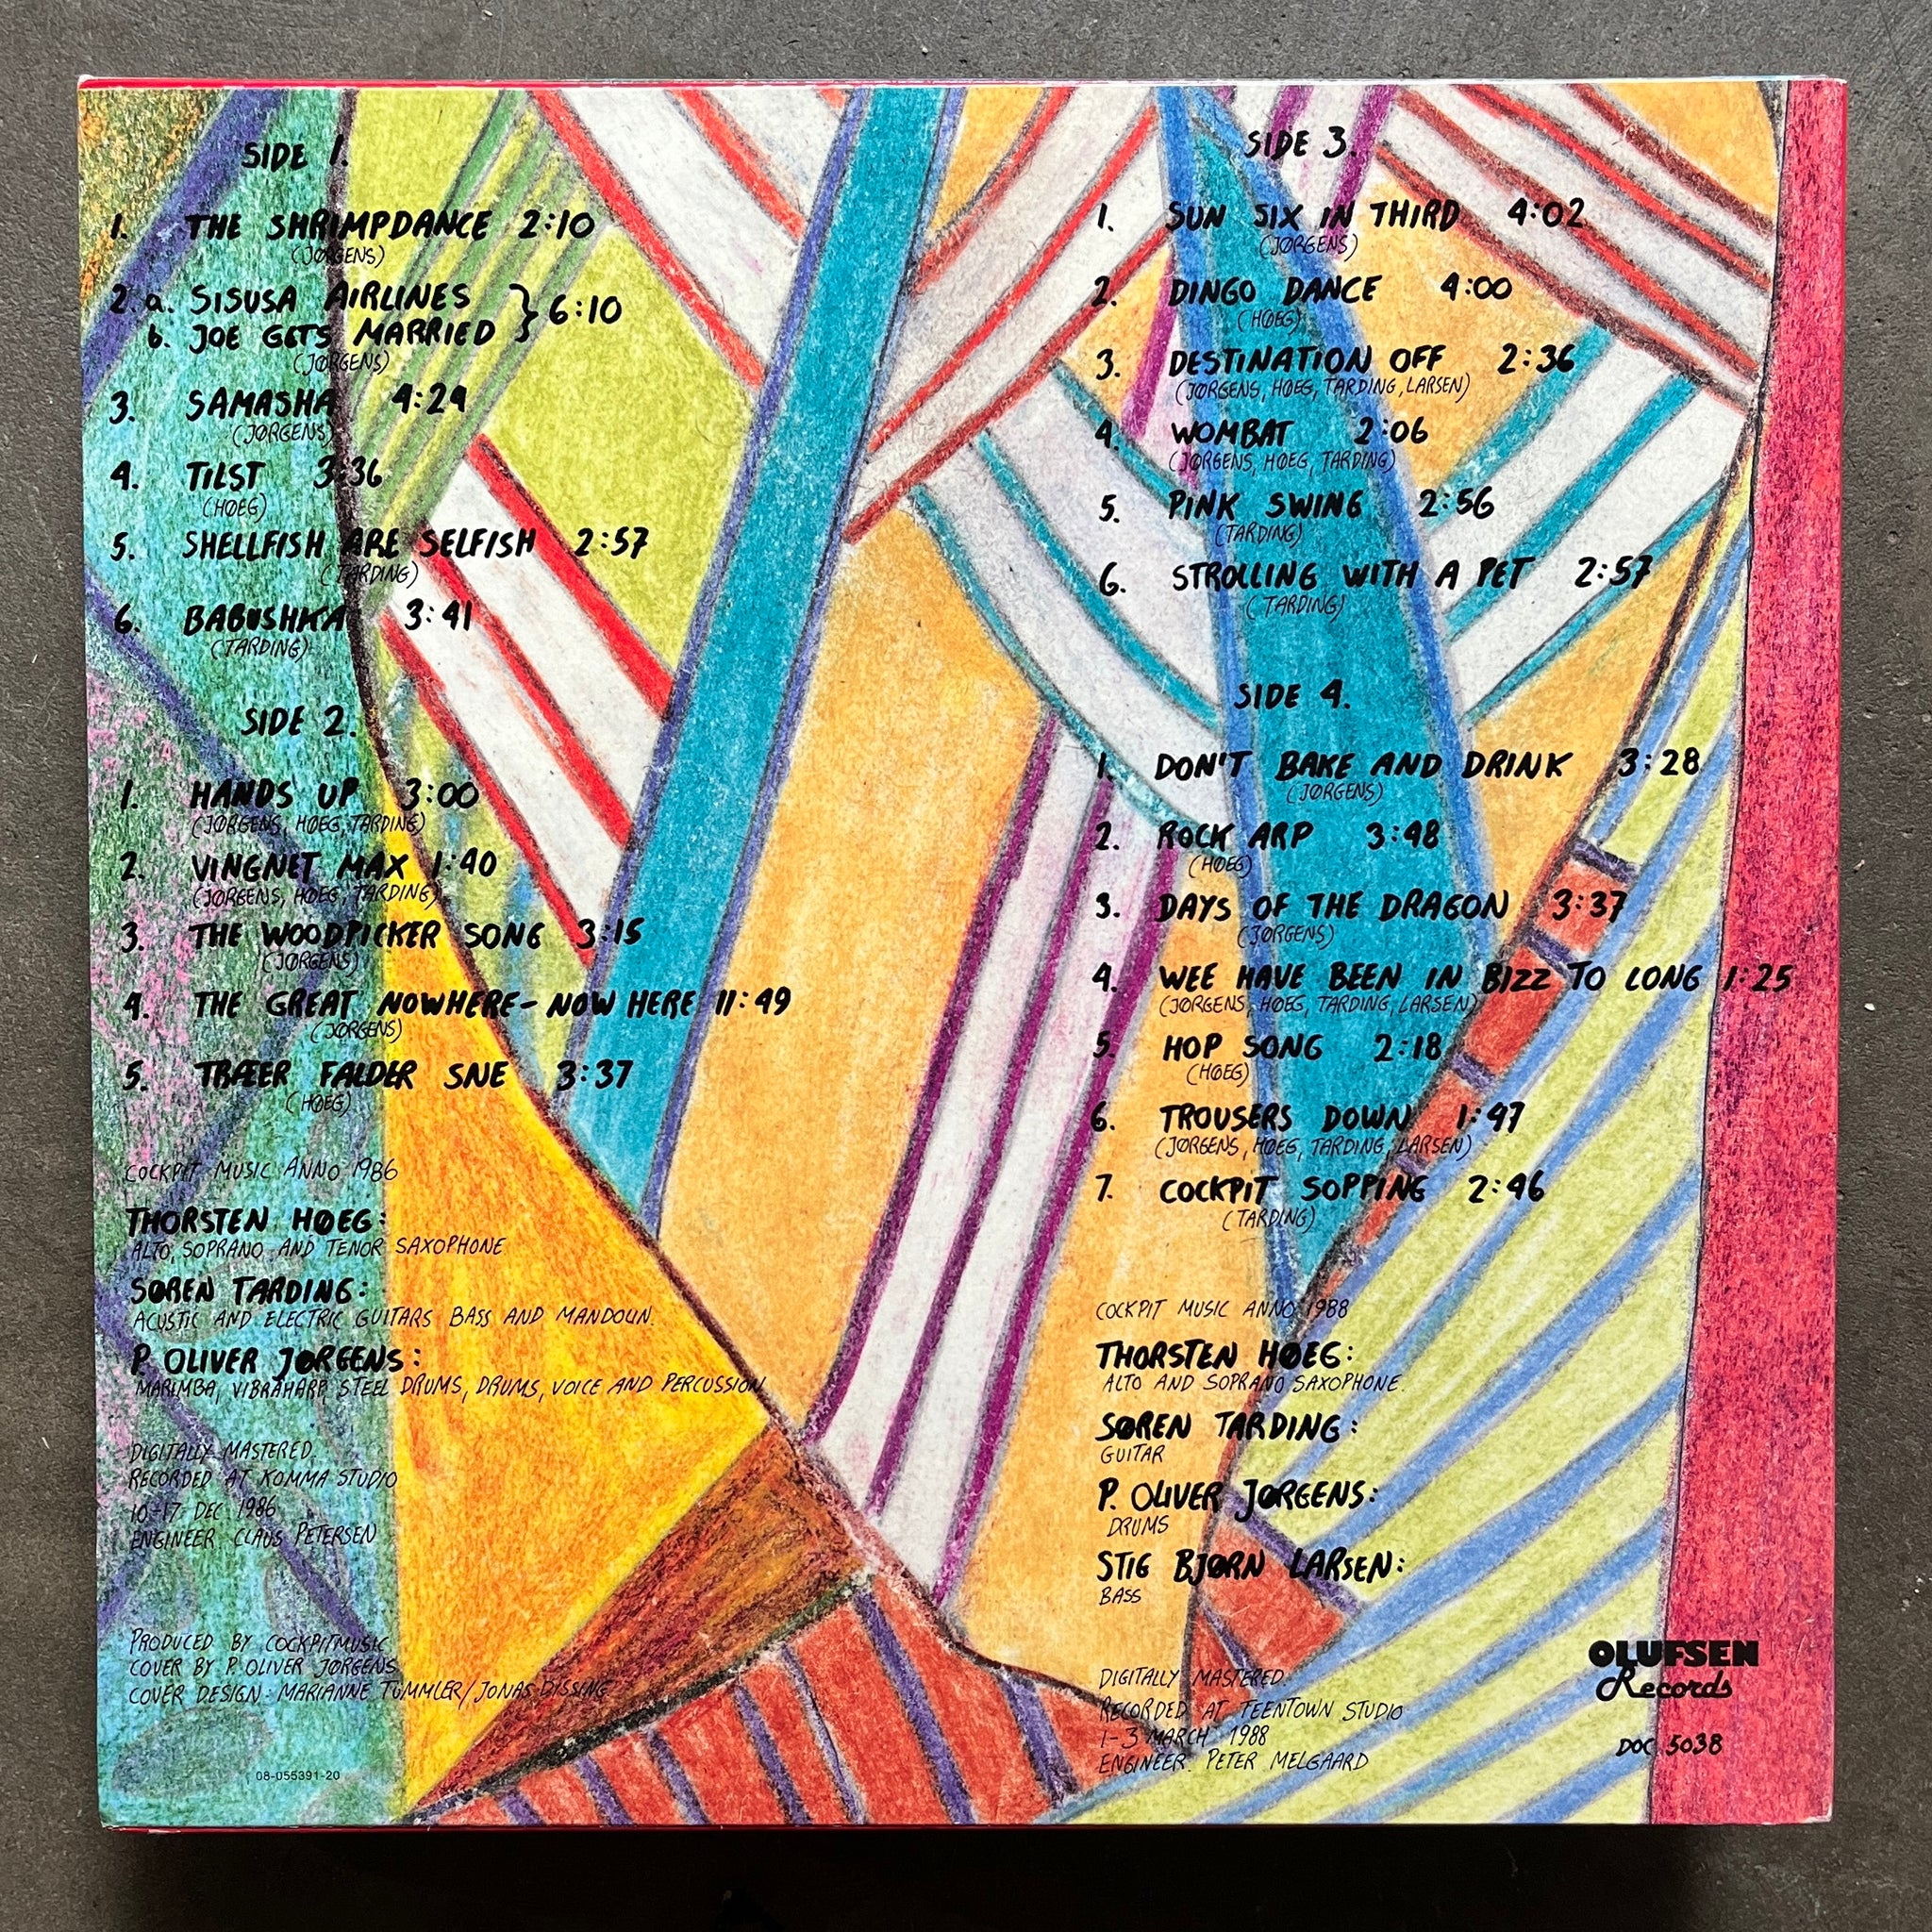 SIDE 1.
1. THE SHRIMPDANCE 2:10
(JØRGENS)
2. a. SISUSA AIRLINES
b. JOE GETS MARRIED } 6:10
(JØRGENS)
3. SAMASHA 4:29
(JØRGENS)
4. TILST 3:36
(HØEG)
5. SHELLFISH ARE SELFISH 2:57
(TARDING)
6. BABUSHKA 3:41
(TARDING)
SIDE 2.
1. HANDS UP 3:00
(JØRGENS, HØEG, TARDING)
2. VINGNET MAX 1:40
(JØRGENS, HØEG, TARDING)
3. THE WOODPICKER SONG 3:15
(JØRGENS)
4. THE GREAT NOWHERE - NOW HERE 11:49
(JØRGENS)
5. TRÆER FALDER SNE 3:37
(HØEG)
COCKPIT MUSIC ANNO 1986
THORSTEN HØEG:
ALTO, SOPRANO AND TENOR SAXOPHONE
SØREN TARDING:
ACUSTIC AND ELECTRIC GUITARS BASS AND MANDOLIN.
P. OLIVER JØRGENS:
MARIMBA, VIBRAHARP, STEEL DRUMS, DRUMS, VOICE AND PERCUSSION
DIGITALLY MASTERED.
RECORDED AT KOMMA STUDIO
10-17 DEC 1986
ENGINEER CLAUS PETERSEN
PRODUCED BY COCKPITMUSIC
COVER BY P. OLIVER JØRGENS
COVER DESIGN: MARIANNE TÜMMLER/JONAS DISSING
08-055391-20
SIDE 3.
1. SUN SIX IN THIRD 4:02
(JØRGENS)
2. DINGO DANCE 4:00
(HØEG)
3. DESTINATION OFF 2:36
(JØRGENS, HØEG, TARDING, LARSEN)
4. WOMBAT 2:06
(JØRGENS, HØEG, TARDING)
5. PINK SWING 2:56
(TARDING)
6. STROLLING WITH A PET 2:57
(TARDING)
SIDE 4.
1. DON'T BAKE AND DRINK 3:28
(JØRGENS)
2. ROCK ARP 3:48
(HØEG)
3. DAYS OF THE DRAGON 3:37
(JØRGENS)
4. WEE HAVE BEEN IN BIZZ TO LONG 1:25
(JØRGENS, HØEG, TARDING, LARSEN)
5. HOP SONG 2:18
(HØEG)
6. TROUSERS DOWN 1:47
(JØRGENS, HØEG, TARDING, LARSEN)
7. COCKPIT SOPPING 2:46
(TARDING)
COCKPIT MUSIC ANNO 1988
THORSTEN HØEG:
ALTO AND SOPRANO SAXOPHONE.
SØREN TARDING:
GUITAR
P. OLIVER JØRGENS:
DRUMS
STIG BJØRN LARSEN:
BASS
DIGITALLY MASTERED.
RECORDED AT TEENTOWN STUDIO
1-3 MARCH 1988
ENGINEER. PETER MELGAARD
OLUFSEN
Records
DOC 5038